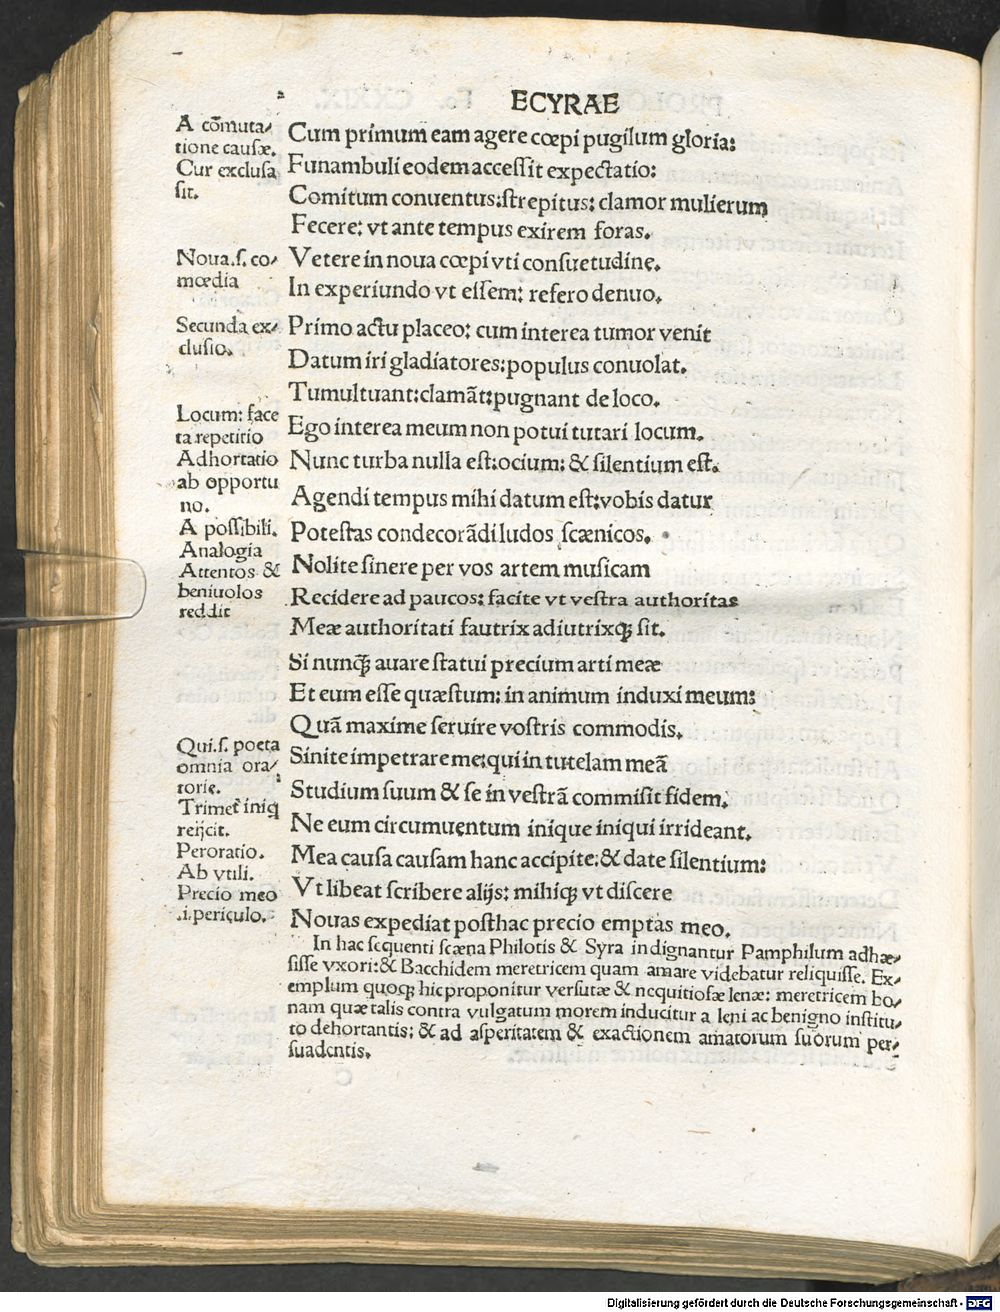 ECYRAE
A cõmuta/
tione causæ.
Cur exclusa
sit.
Noua.ſ. co/
mœdia
Secunda ex/
clusio.
Locum: face
ta repetitio
Adhortatio
ab opportu
no.
A poſſibili.
Analogia
Attentos &
beniuolos
reddit
Qui.ſ. poeta
omnia ora/
torie.
Trimet iniq
reijcit.
Peroratio.
Ab vtili.
Precio meo
.i. periculo.
Cum primum eam agere cœpi pugilum gloria:
Funambuli eodem acceſſit expectatio:
Comitum conuentus:ſtrepitus: clamor mulierum
Fecere: vt ante tempus exirem foras.
Vetere in noua cœpi vti conſuetudine.
In experiundo vt eſſem: refero denuo.
Primo actu placeo: cum interea tumor venit
Datum iri gladiatores:populus conuolat.
Tumultuant:clamãt:pugnant de loco.
Ego interea meum non potui tutari locum.
Nunc turba nulla eſt:ocium: & ſilentium eſt.
Agendi tempus mihi datum eſt:vobis datur
Poteſtas condecorãdi ludos ſcænicos.
Nolite ſinere per vos artem muſicam
Recidere ad paucos: facite vt veſtra authoritas
Meæ authoritati fautrix adiutrixq̃ ſit.
Si nunq̃ auare ſtatui precium arti meæ
Et eum eſſe quæſtum: in animum induxi meum:
Quã maxime ſeruire voſtris commodis.
Sinite impetrare me:qui in tutelam meã
Studium ſuum & ſe in veſtrã commiſit fidem.
Ne eum circumuentum inique iniqui irrideant.
Mea cauſa cauſam hanc accipite:& date ſilentium:
Vt libeat ſcribere alijs: mihiq̃ vt diſcere
Nouas expediat poſthac precio emptas meo.
In hac ſequenti ſcæna Philotis & Syra indignantur Pamphilum adhæ/
ſiſſe vxori:& Bacchidem meretricem quam amare videbatur reliquiſſe. Ex/
emplum quoq̃ hic proponitur verſutæ & nequitioſæ lenæ: meretricem bo/
nam quæ talis contra vulgatum morem inducitur a leni ac benigno inſtitu/
to dehortantis: & ad aſperitatem & exactionem amatorum ſuorum per/
ſuadentis.
Digitalisierung gefördert durch die Deutsche Forschungsgemeinschaft - DFG